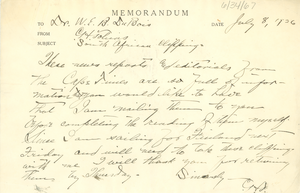 MEMORANDUM
TO Dr. W. E. B. Du Bois
DATE July 8, 1926
FROM
SUBJECT South African Clippings
These news reports & editorials from
the Cape Times are so full of infor-
mation would like to have
that I am mailing them to you
before completing the reading of them myself
Since I am sailing for Finland next
Friday and wish to take these clippings
with me I will thank you for returning
them by Thursday.
Sincerely